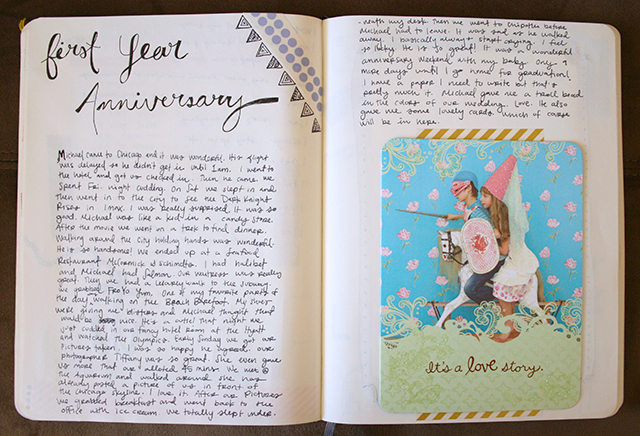 first Year
Anniversary
Michael came to Chicago and it was wonderful. His flight
was delayed so he didn't get in until 1am. I went to
the hotel and got us checked in. Then he came. We
spent Fri. night cuddling. On Sat we slept in and
then went in to the city to see the Dark Knight
Rises in Imax. I was really surprised, it was so
good. Michael was like a kid in a candy store.
After the movie we went on a trek to find dinner.
Walking around the city holding hands was wonderful.
He is so handsome! We ended up at a seafood
Restaurant McCormick & Schmidts. I had halibet
and Michael had salmon. Our waitress was really
great. Then we had a leisurely walk to the subway.
We grabbed FroYo Yum. One of my favorite parts of
the day walking on the Beach Barefoot. My shoes
were giving me blisters and Michael thought that
would be nice. He's so cute! That night we
just cuddled in our fancy hotel room at the Hyatt
and watched the Olympics. Early Sunday we got our
pictures taken. I was so happy he agreed. Our
photographer Tiffany was so great. She even gave
us more than our alloted 45 mins. We met @
the aquarium and walked around. She has
already posted a picture of us in front of
the Chicago skyline. I love it. After our pictures
we grabbed breakfast and went back to the
office with ice cream. We totally slept under
- neath my desk. Then we went to Chipotles before
Michael had to leave. It was sad as he walked
away. I basically always start crying. I feel
so lucky. He is so great! It was a wonderful
anniversary weekend with my baby. Only 9
more days until I go home for graduation!
I have a paper I need to write but that's
pretty much it. Michael gave me a troll bead
in the colors of our wedding. Love. He also
gave me some lovely cards. Which of course
will be in here.
It's a love story.